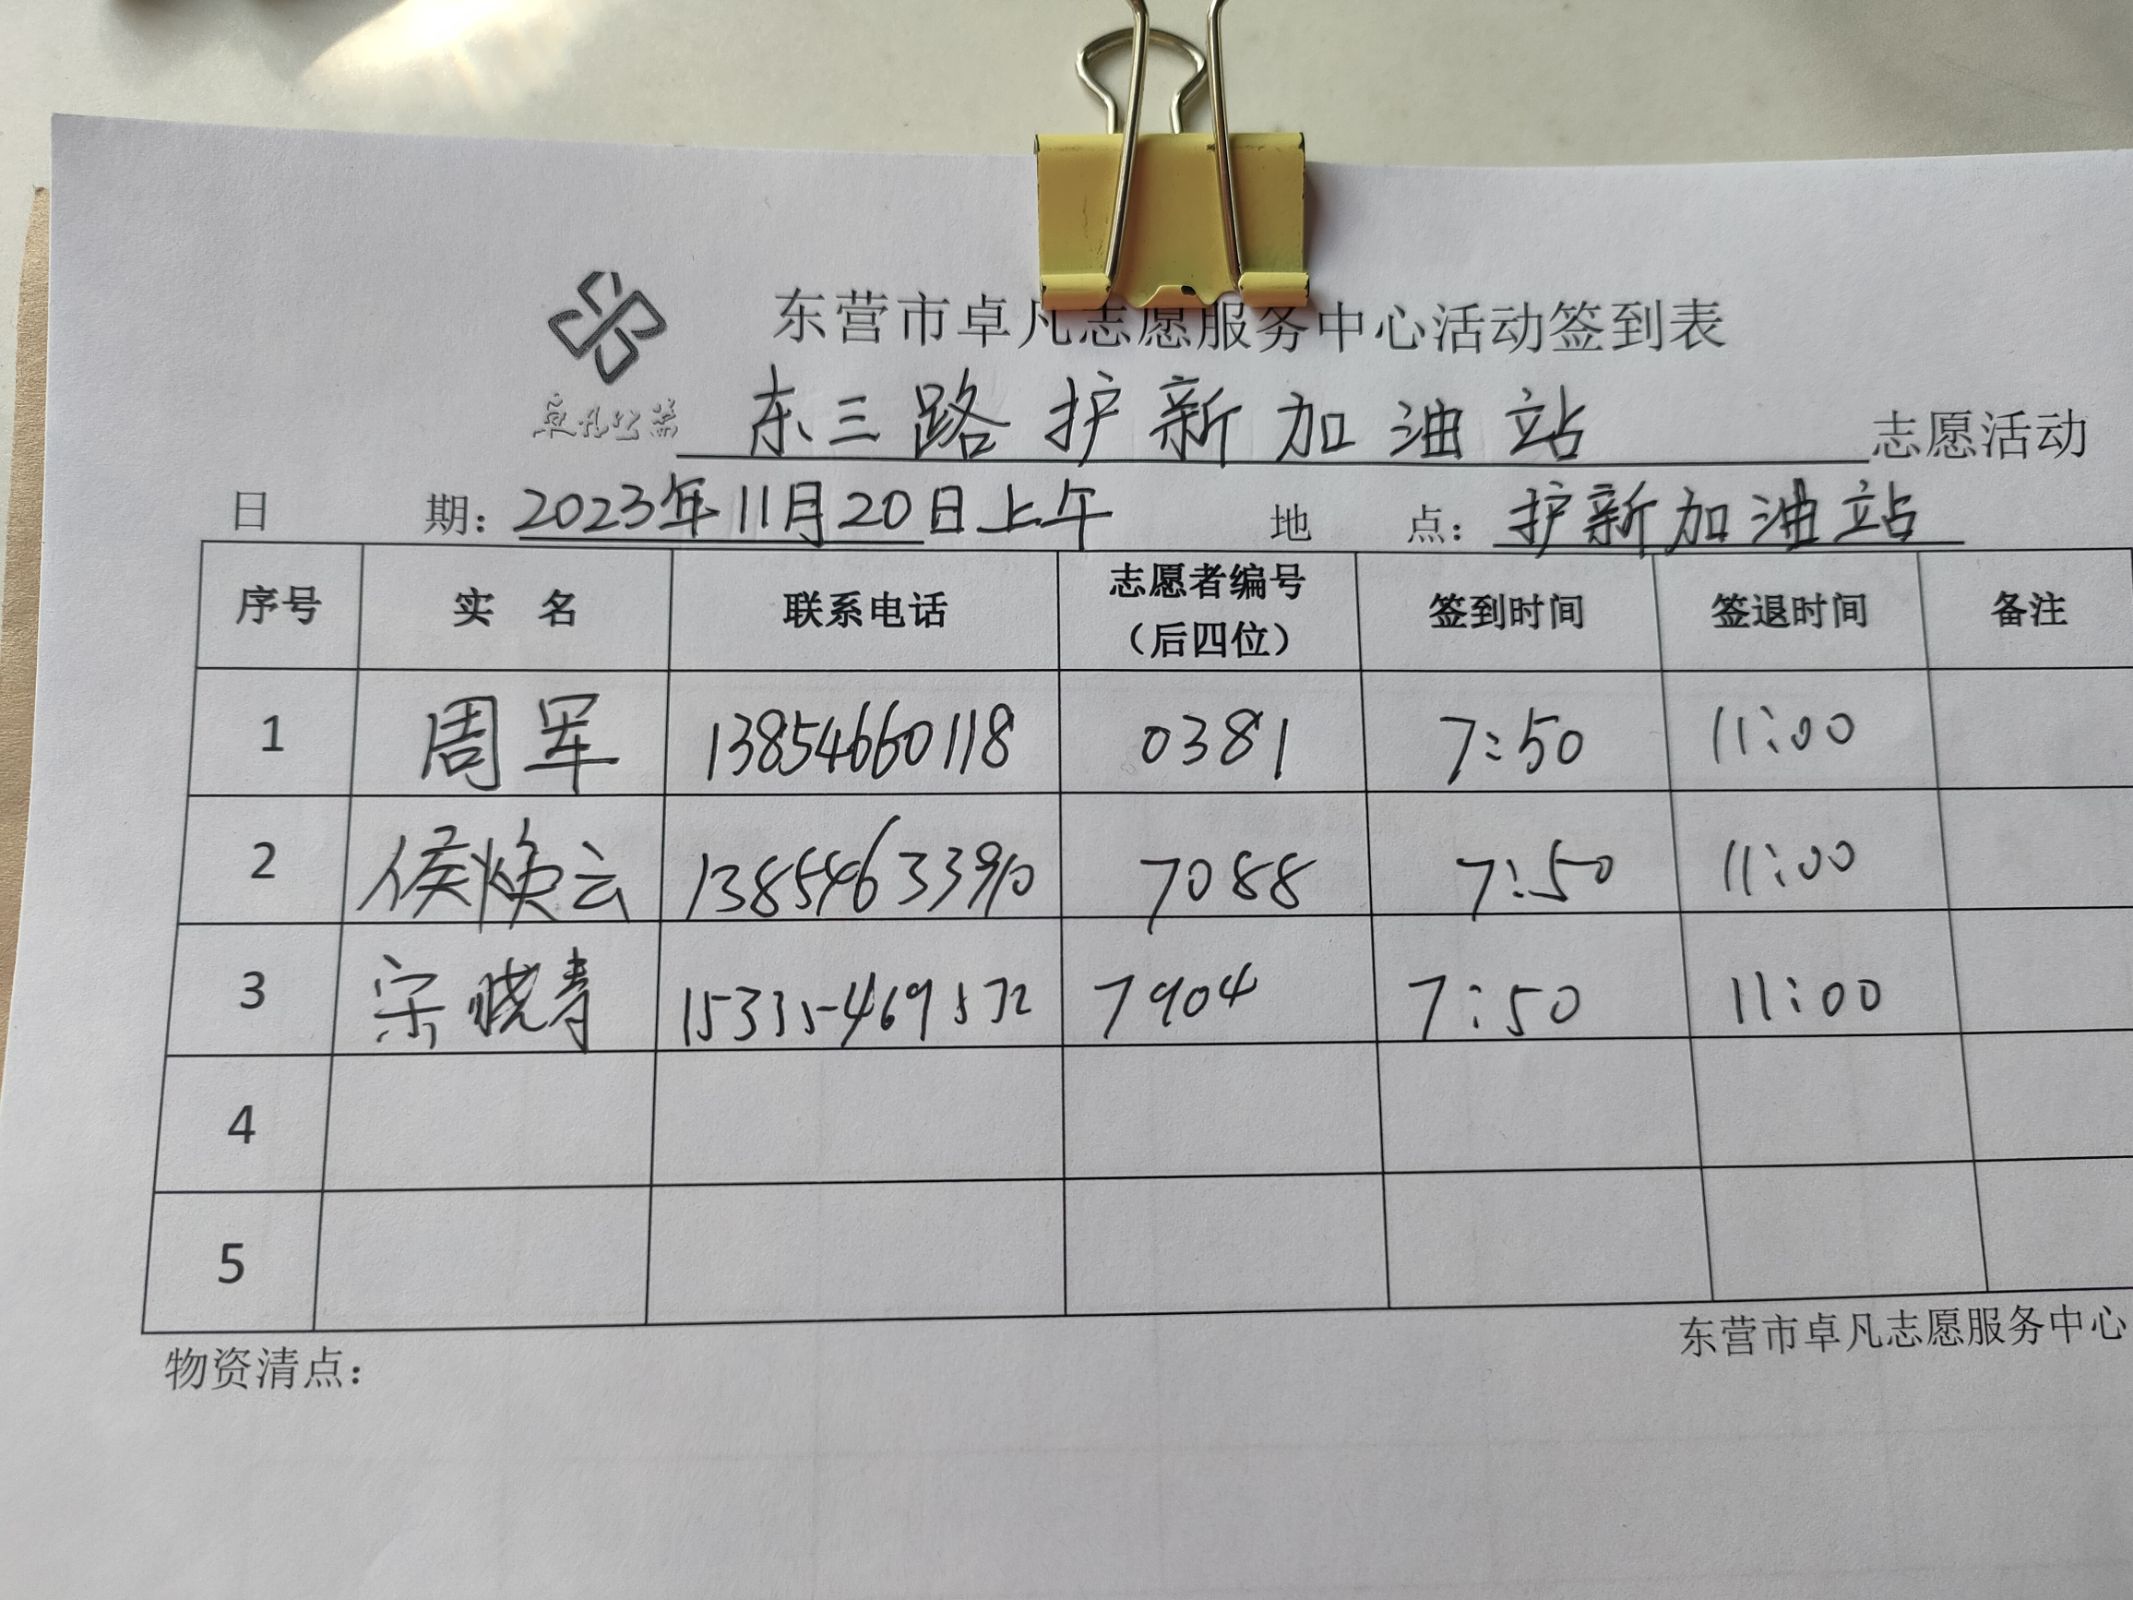 东营市卓凡志愿服务中心活动签到表
卓凡公益
东三路护新加油站 志愿活动
日 期：2023年11月20日上午 地 点：护新加油站
序号 实 名 联系电话 志愿者编号（后四位） 签到时间 签退时间 备注
1 周军 13854660118 0381 7:50 11:00
2 侯焕云 13854633910 7088 7:50 11:00
3 宋晓青 7904 7:50 11:00
4
5
东营市卓凡志愿服务中心
物资清点：